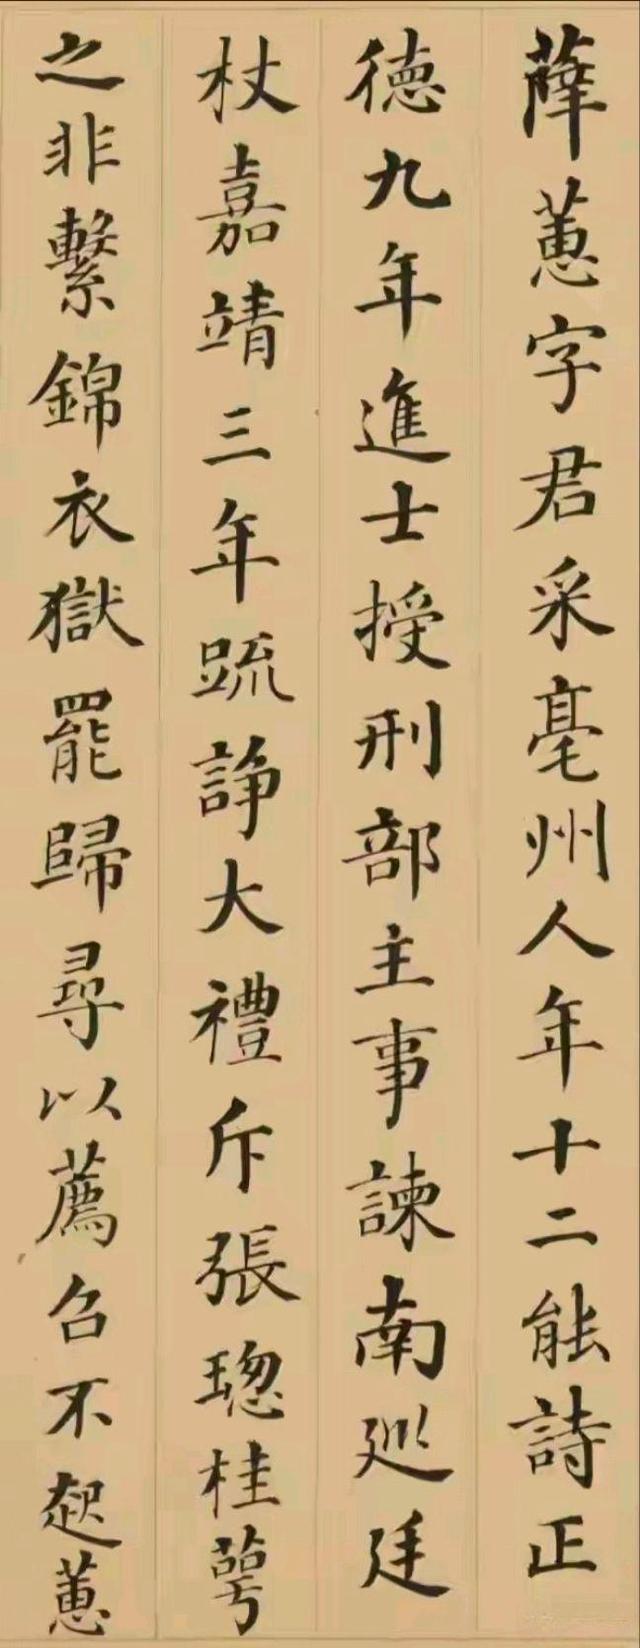 薛蕙字君采亳州人年十二能詩正
德九年進士授刑部主事諫南巡廷
杖嘉靖三年疏諍大禮斥張璁桂萼
之非繫錦衣獄罷歸尋以薦召不起蕙